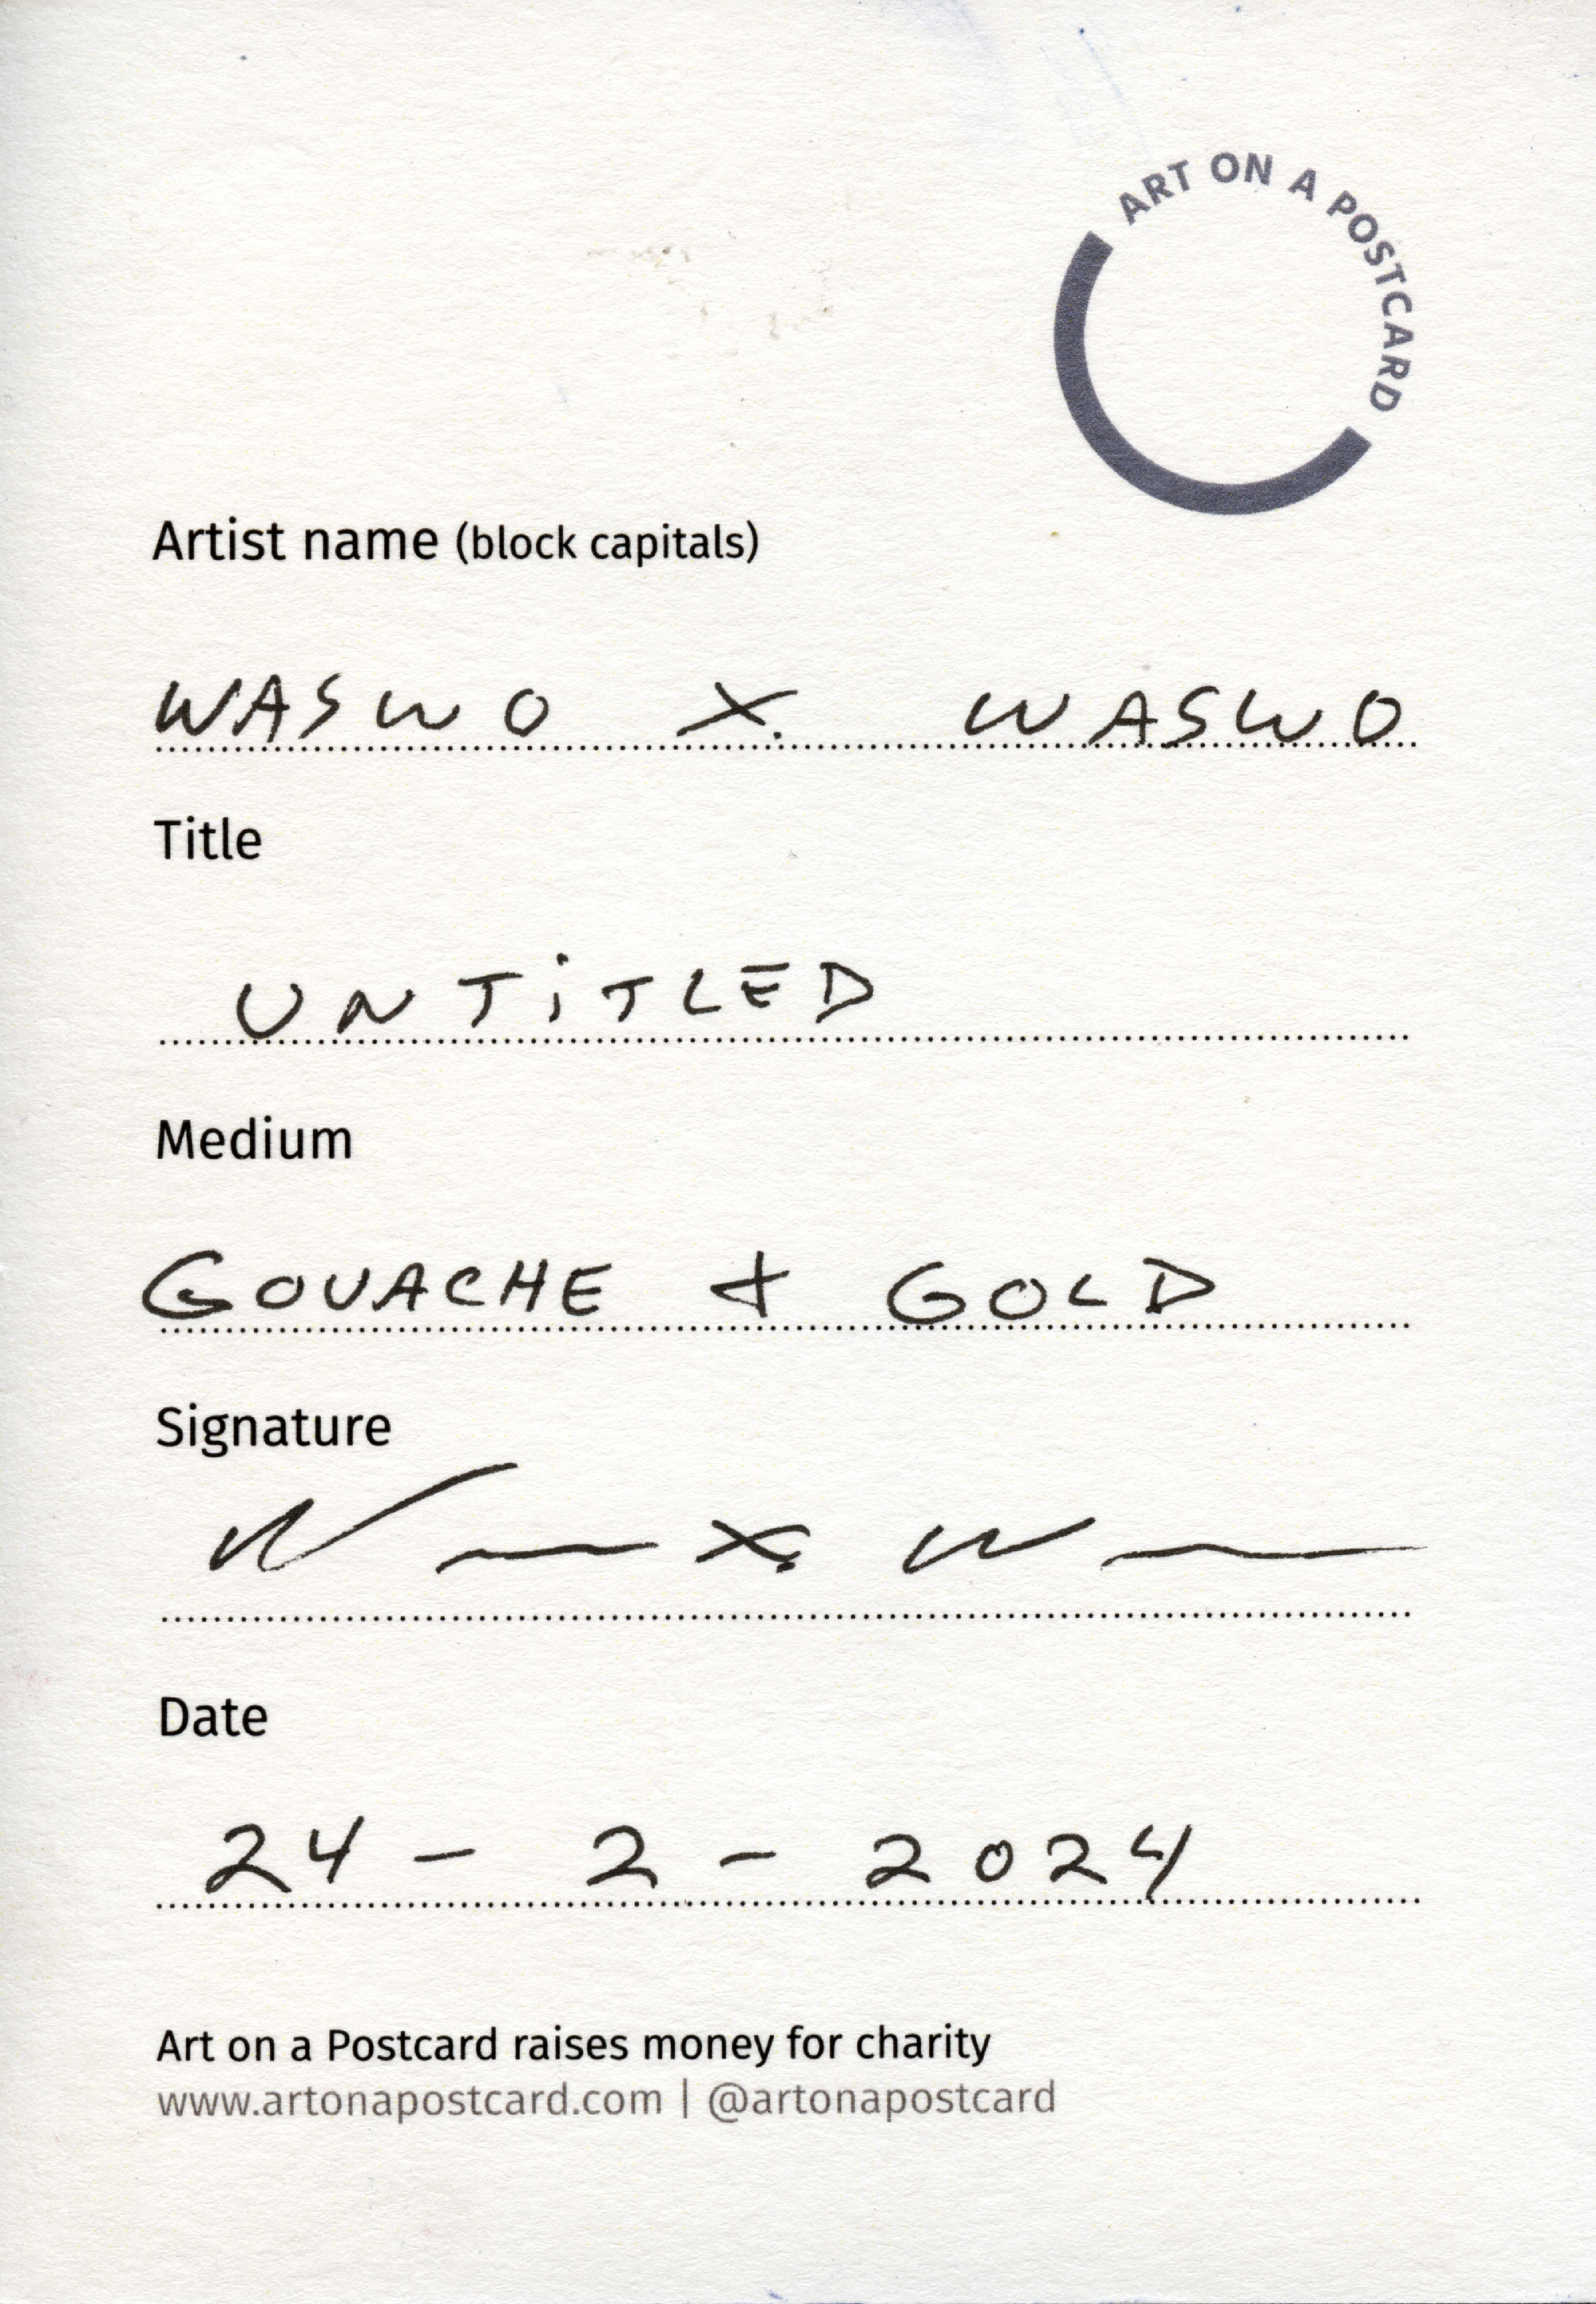 ART ON A POSTCARD
Artist name (block capitals)
WASWO X. WASWO
Title
UNTiTLED
Medium
GOUACHE + GOLD
Signature
Date
24 - 2 - 2024
Art on a Postcard raises money for charity
www.artonapostcard.com | @artonapostcard